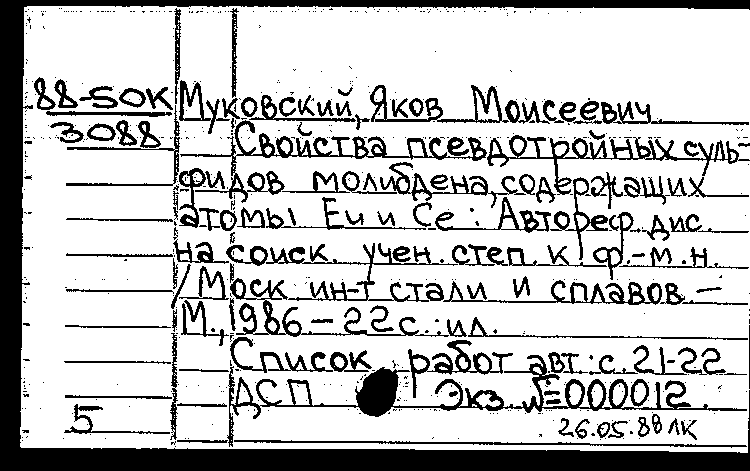 88-5ОК Муковский, Яков Моисеевич
3088 Свойства псевдотройных суль-
фидов молибдена, содержащих
атомы Eu и Ce : Автореф. дис.
на соиск. учен. степ. к. ф.-м.н.
/ Моск. ин-т стали и сплавов. —
М., 1986 — 22 с. : ил.
Список работ авт.: с. 21-22
ДСП Экз. №000012.
5
26.05.88 ЛК